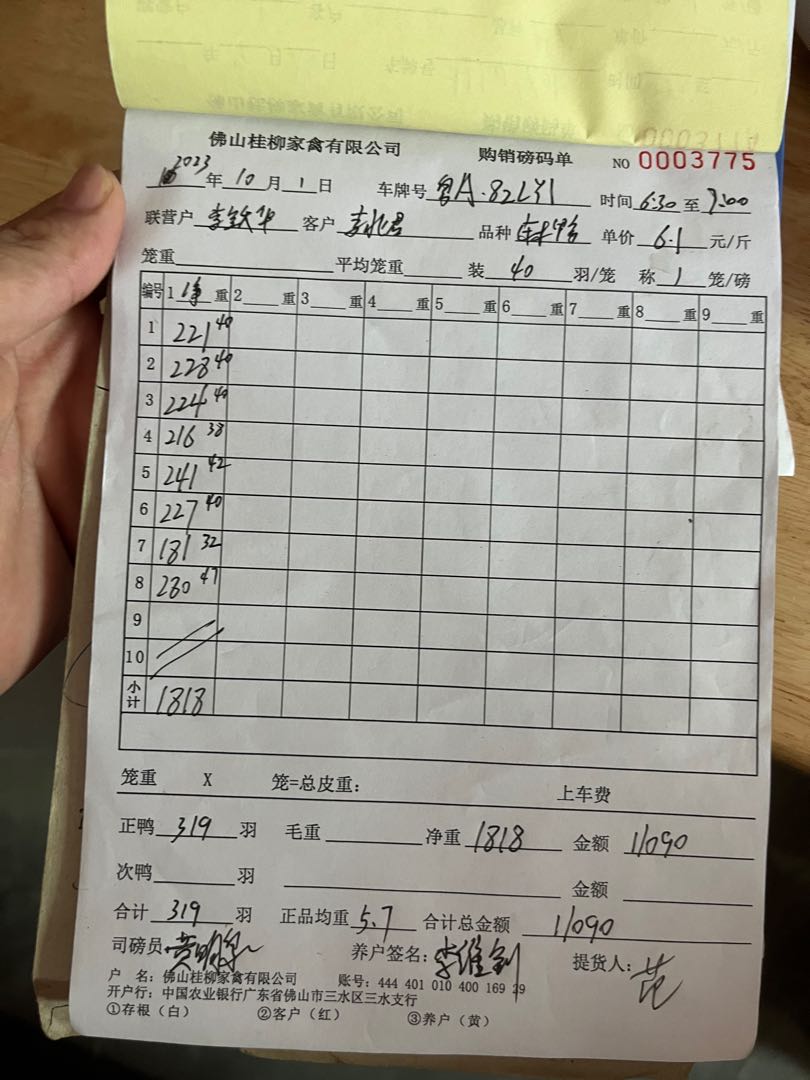 佛山桂柳家禽有限公司 购销磅码单 NO 0003775
2023年10月1日 车牌号 粤A·82LY1 时间 6:30 至 7:00
联营户 李 客户 李 品种 单价 6.1 元/斤
笼重 平均笼重 装 40 羽/笼 称 1 笼/磅
编号 1 净 重 2 重 3 重 4 重 5 重 6 重 7 重 8 重 9 重
1 221 40
2 228 40
3 224 40
4 216 38
5 241 42
6 227 40
7 181 32
8 280 47
9
10
小计 1818
笼重 X 笼=总皮重: 上车费
正鸭 319 羽 毛重 净重 1818 金额 11090
次鸭 羽 金额
合计 319 羽 正品均重 5.7 合计总金额 11090
司磅员 黄明 养户签名: 李维钊 提货人:
户 名: 佛山桂柳家禽有限公司 账号: 444 401 010 400 169 29
开户行: 中国农业银行广东省佛山市三水区三水支行
①存根(白) ②客户(红) ③养户(黄)